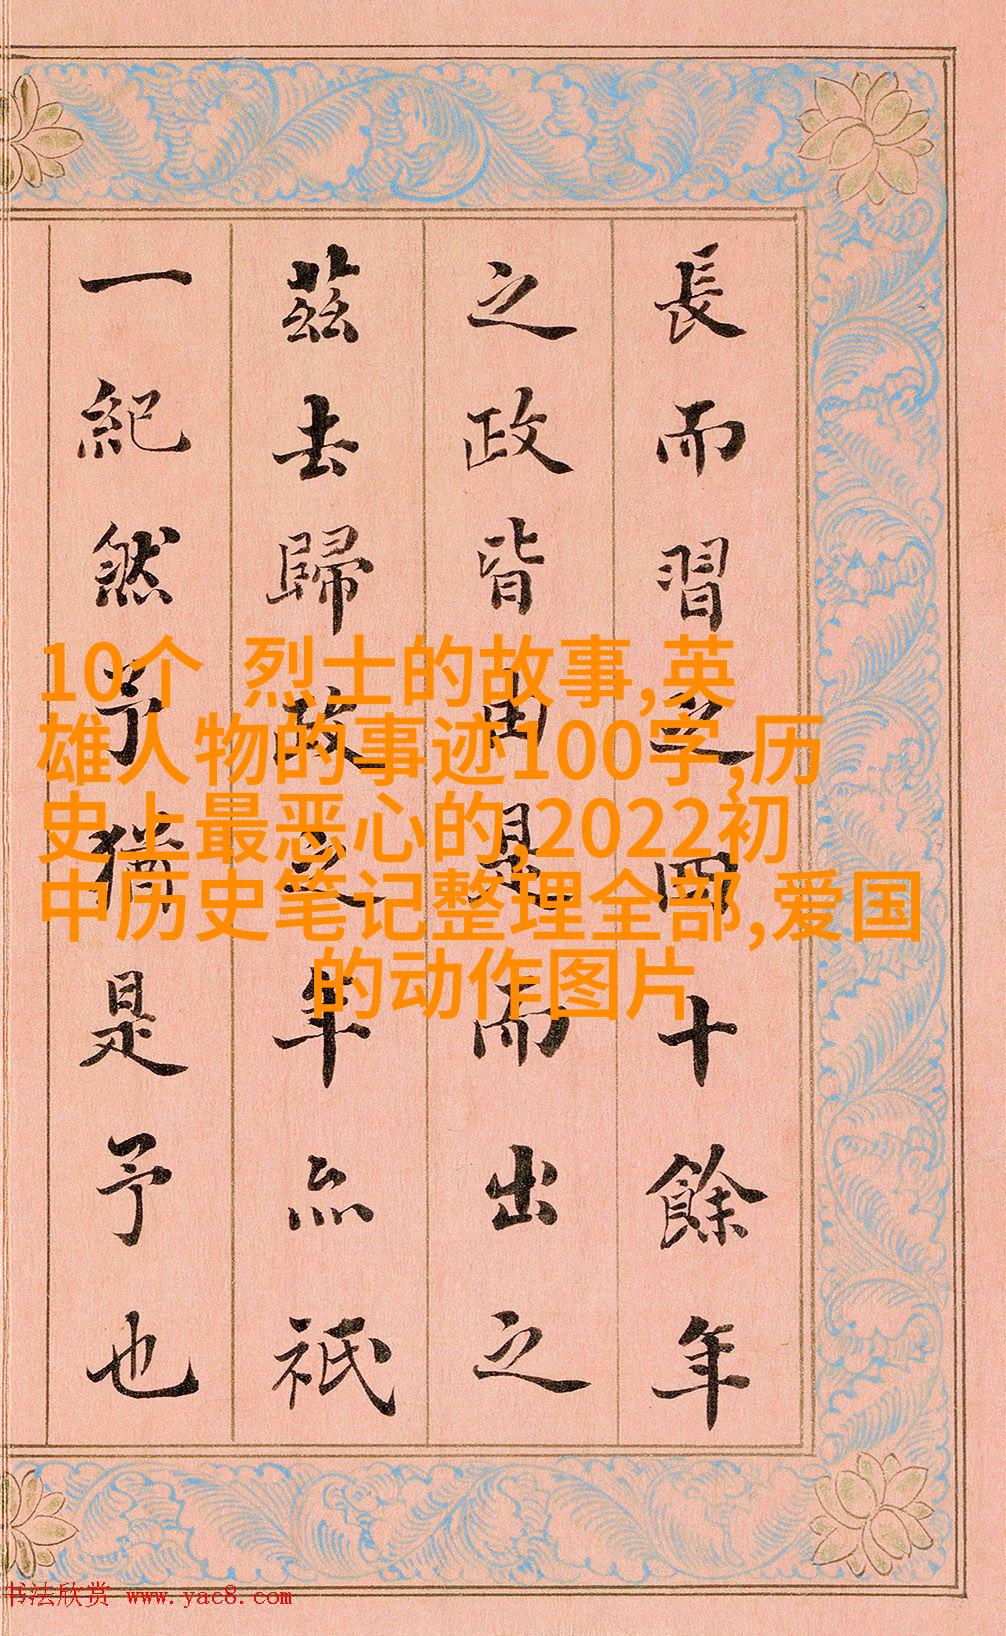 長而習之四十餘年
之政皆由是而出之
茲去歸政之年亦祇
一紀然予猶是予也
10个 烈士的故事,英
雄人物的事迹100字,历
史上最恶心的,2022初
中历史笔记整理全部,爱国
的动作图片
书法欣赏 www.yac8.com